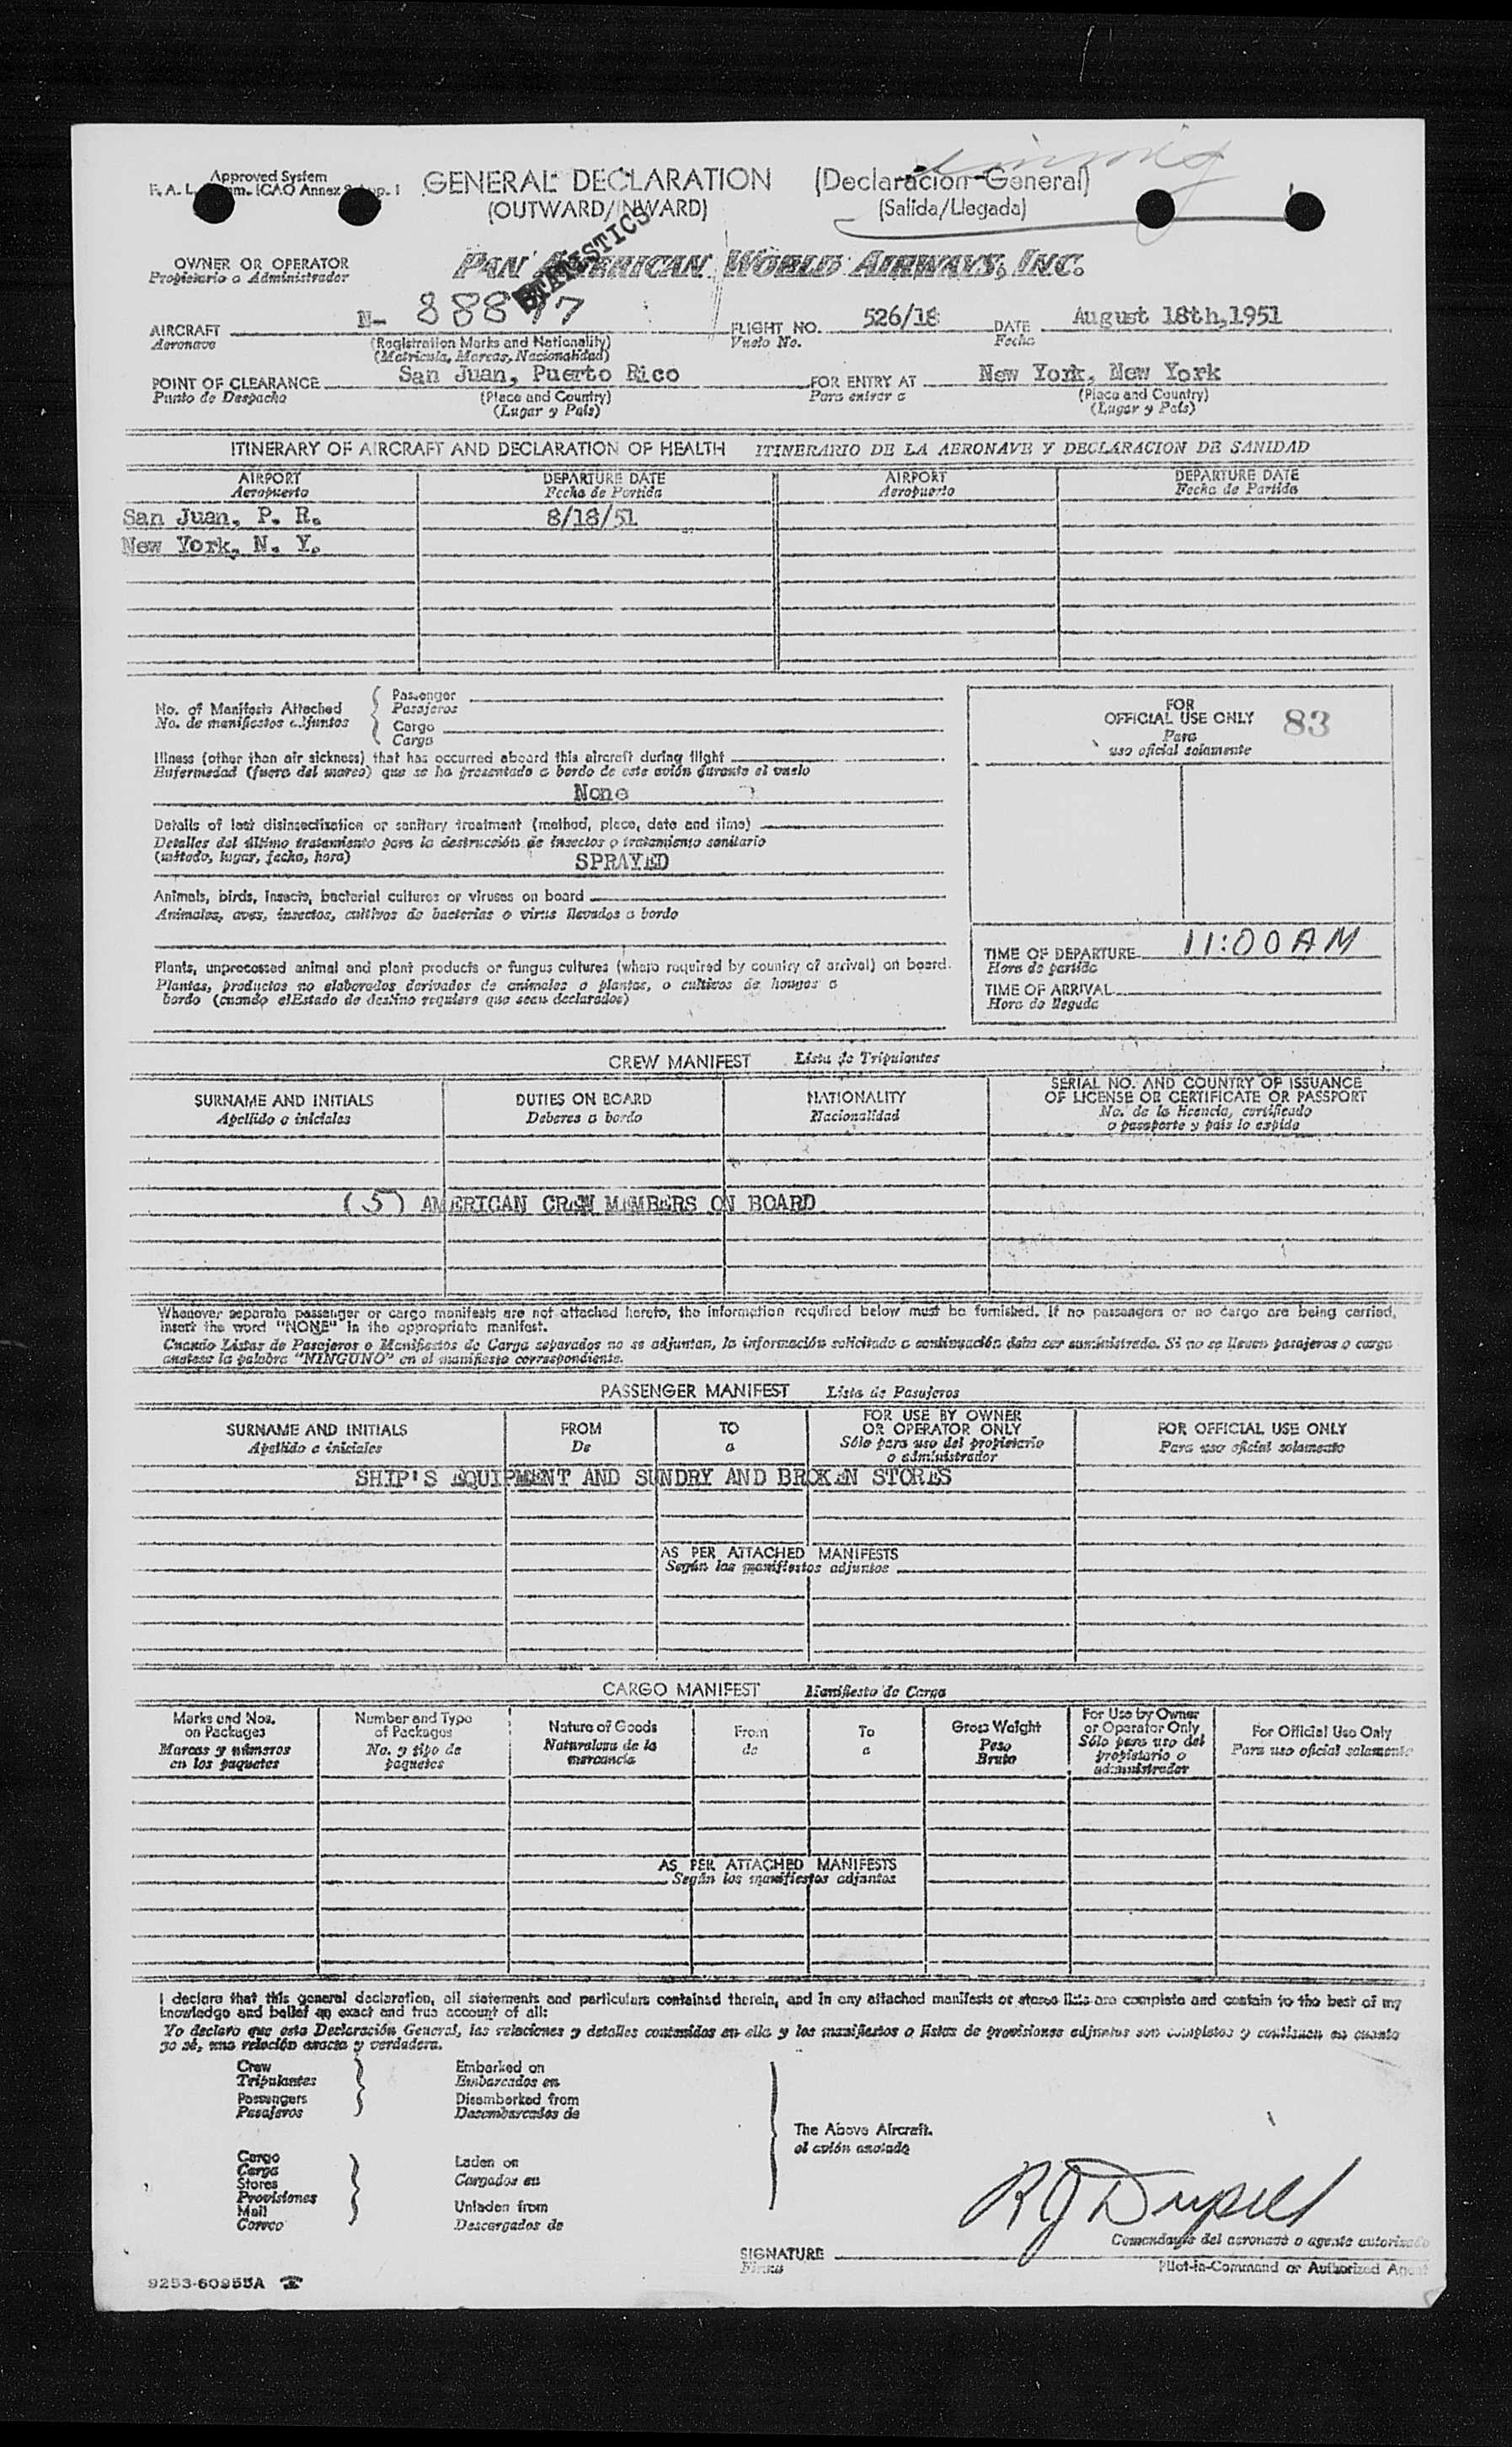 Approved System
GENERAL DECLARATION (Declaracion General)
(OUTWARD/INWARD) (Salida/Llegada)
STATISTICS
OWNER OR OPERATOR PAN AMERICAN WORLD AIRWAYS, INC.
Propietario o Administrador
AIRCRAFT N- FLIGHT NO. 526/18 DATE August 18th,1951
Aeronave (Registration Marks and Nationality) Vuelo No. Fecha
(Matricula, Marcas, Nacionalidad)
POINT OF CLEARANCE San Juan, Puerto Rico FOR ENTRY AT New York, New York
Punto de Despacho (Place and Country) Para entrar a (Place and Country)
(Lugar y País) (Lugar y País)
ITINERARY OF AIRCRAFT AND DECLARATION OF HEALTH ITINERARIO DE LA AERONAVE Y DECLARACION DE SANIDAD
AIRPORT DEPARTURE DATE AIRPORT DEPARTURE DATE
Aeropuerto Fecha de Partida Aeropuerto Fecha de Partida
San Juan, P. R. 8/18/51
New York, N. Y.
No. of Manifests Attached { Passenger
No. de manifiestos adjuntos Pasajeros
Cargo
Carga
FOR
OFFICIAL USE ONLY 83
Para
uso oficial solamente
Illness (other than air sickness) that has occurred aboard this aircraft during flight
Enfermedad (fuera del mareo) que se ha presentado a bordo de este avión durante el vuelo
None
Details of last disinsectization or sanitary treatment (method, place, date and time)
Detalles del último tratamiento para la destrucción de insectos o tratamiento sanitario
(método, lugar, fecha, hora) SPRAYED
Animals, birds, insects, bacterial cultures or viruses on board
Animales, aves, insectos, cultivos de bacterias o virus llevados a bordo
Plants, unprocessed animal and plant products or fungus cultures (where required by country of arrival) on board.
Plantas, productos no elaborados derivados de animales o plantas, o cultivos de hongos a
bordo (cuando elEstado de destino requiere que sean declarados)
TIME OF DEPARTURE 11:00 AM
Hora de partida
TIME OF ARRIVAL
Hora de llegada
CREW MANIFEST Lista de Tripulantes
SURNAME AND INITIALS DUTIES ON BOARD NATIONALITY SERIAL NO. AND COUNTRY OF ISSUANCE
OF LICENSE OR CERTIFICATE OR PASSPORT
Apellido e iniciales Deberes a bordo Nacionalidad No. de la licencia, certificado
o pasaporte y país lo expide
(5) AMERICAN CREW MEMBERS ON BOARD
Whenever separate passenger or cargo manifests are not attached hereto, the information required below must be furnished. If no passengers or no cargo are being carried,
insert the word "NONE" in the appropriate manifest.
Cuando Listas de Pasajeros o Manifiestos de Carga separados no se adjuntan, la información solicitada a continuación debe ser suministrada. Si no se llevan pasajeros o carga
anotese la palabra "NINGUNO" en el manifiesto correspondiente.
PASSENGER MANIFEST Lista de Pasajeros
SURNAME AND INITIALS FROM TO FOR USE BY OWNER
OR OPERATOR ONLY FOR OFFICIAL USE ONLY
Apellido e iniciales De a Sólo para uso del propietario
o administrador Para uso oficial solamente
SHIP'S EQUIPMENT AND SUNDRY AND BROKEN STORES
AS PER ATTACHED MANIFESTS
Según los manifiestos adjuntos
CARGO MANIFEST Manifiesto de Carga
Marks and Nos.
on Packages
Marcas y números
en los paquetes
Number and Type
of Packages
No. y tipo de
paquetes
Nature of Goods
Naturaleza de la
mercancía
From
de
To
a
Gross Weight
Peso
Bruto
For Use by Owner
or Operator Only
Sólo para uso del
propietario o
administrador
For Official Use Only
Para uso oficial solamente
AS PER ATTACHED MANIFESTS
Según los manifiestos adjuntos
I declare that this general declaration, all statements and particulars contained therein, and in any attached manifests or stores lists are complete and contain to the best of my
knowledge and belief an exact and true account of all:
Yo declaro que esta Declaración General, las relaciones y detalles contenidos en ella y los manifiestos o listas de provisiones adjuntas son completos y contienen en cuanto
yo sé, una relación exacta y verdadera.
Crew Embarked on
Tripulantes Embarcados en
Passengers Disembarked from
Pasajeros Desembarcados de
The Above Aircraft.
el avión anotado
Cargo Laden on
Carga Cargados en
Stores
Provisiones
Mail Unladen from
Correo Descargados de
Comandante del aeronave o agente autorizado
SIGNATURE
Firma Pilot-in-Command or Authorized Agent
9253-60955A